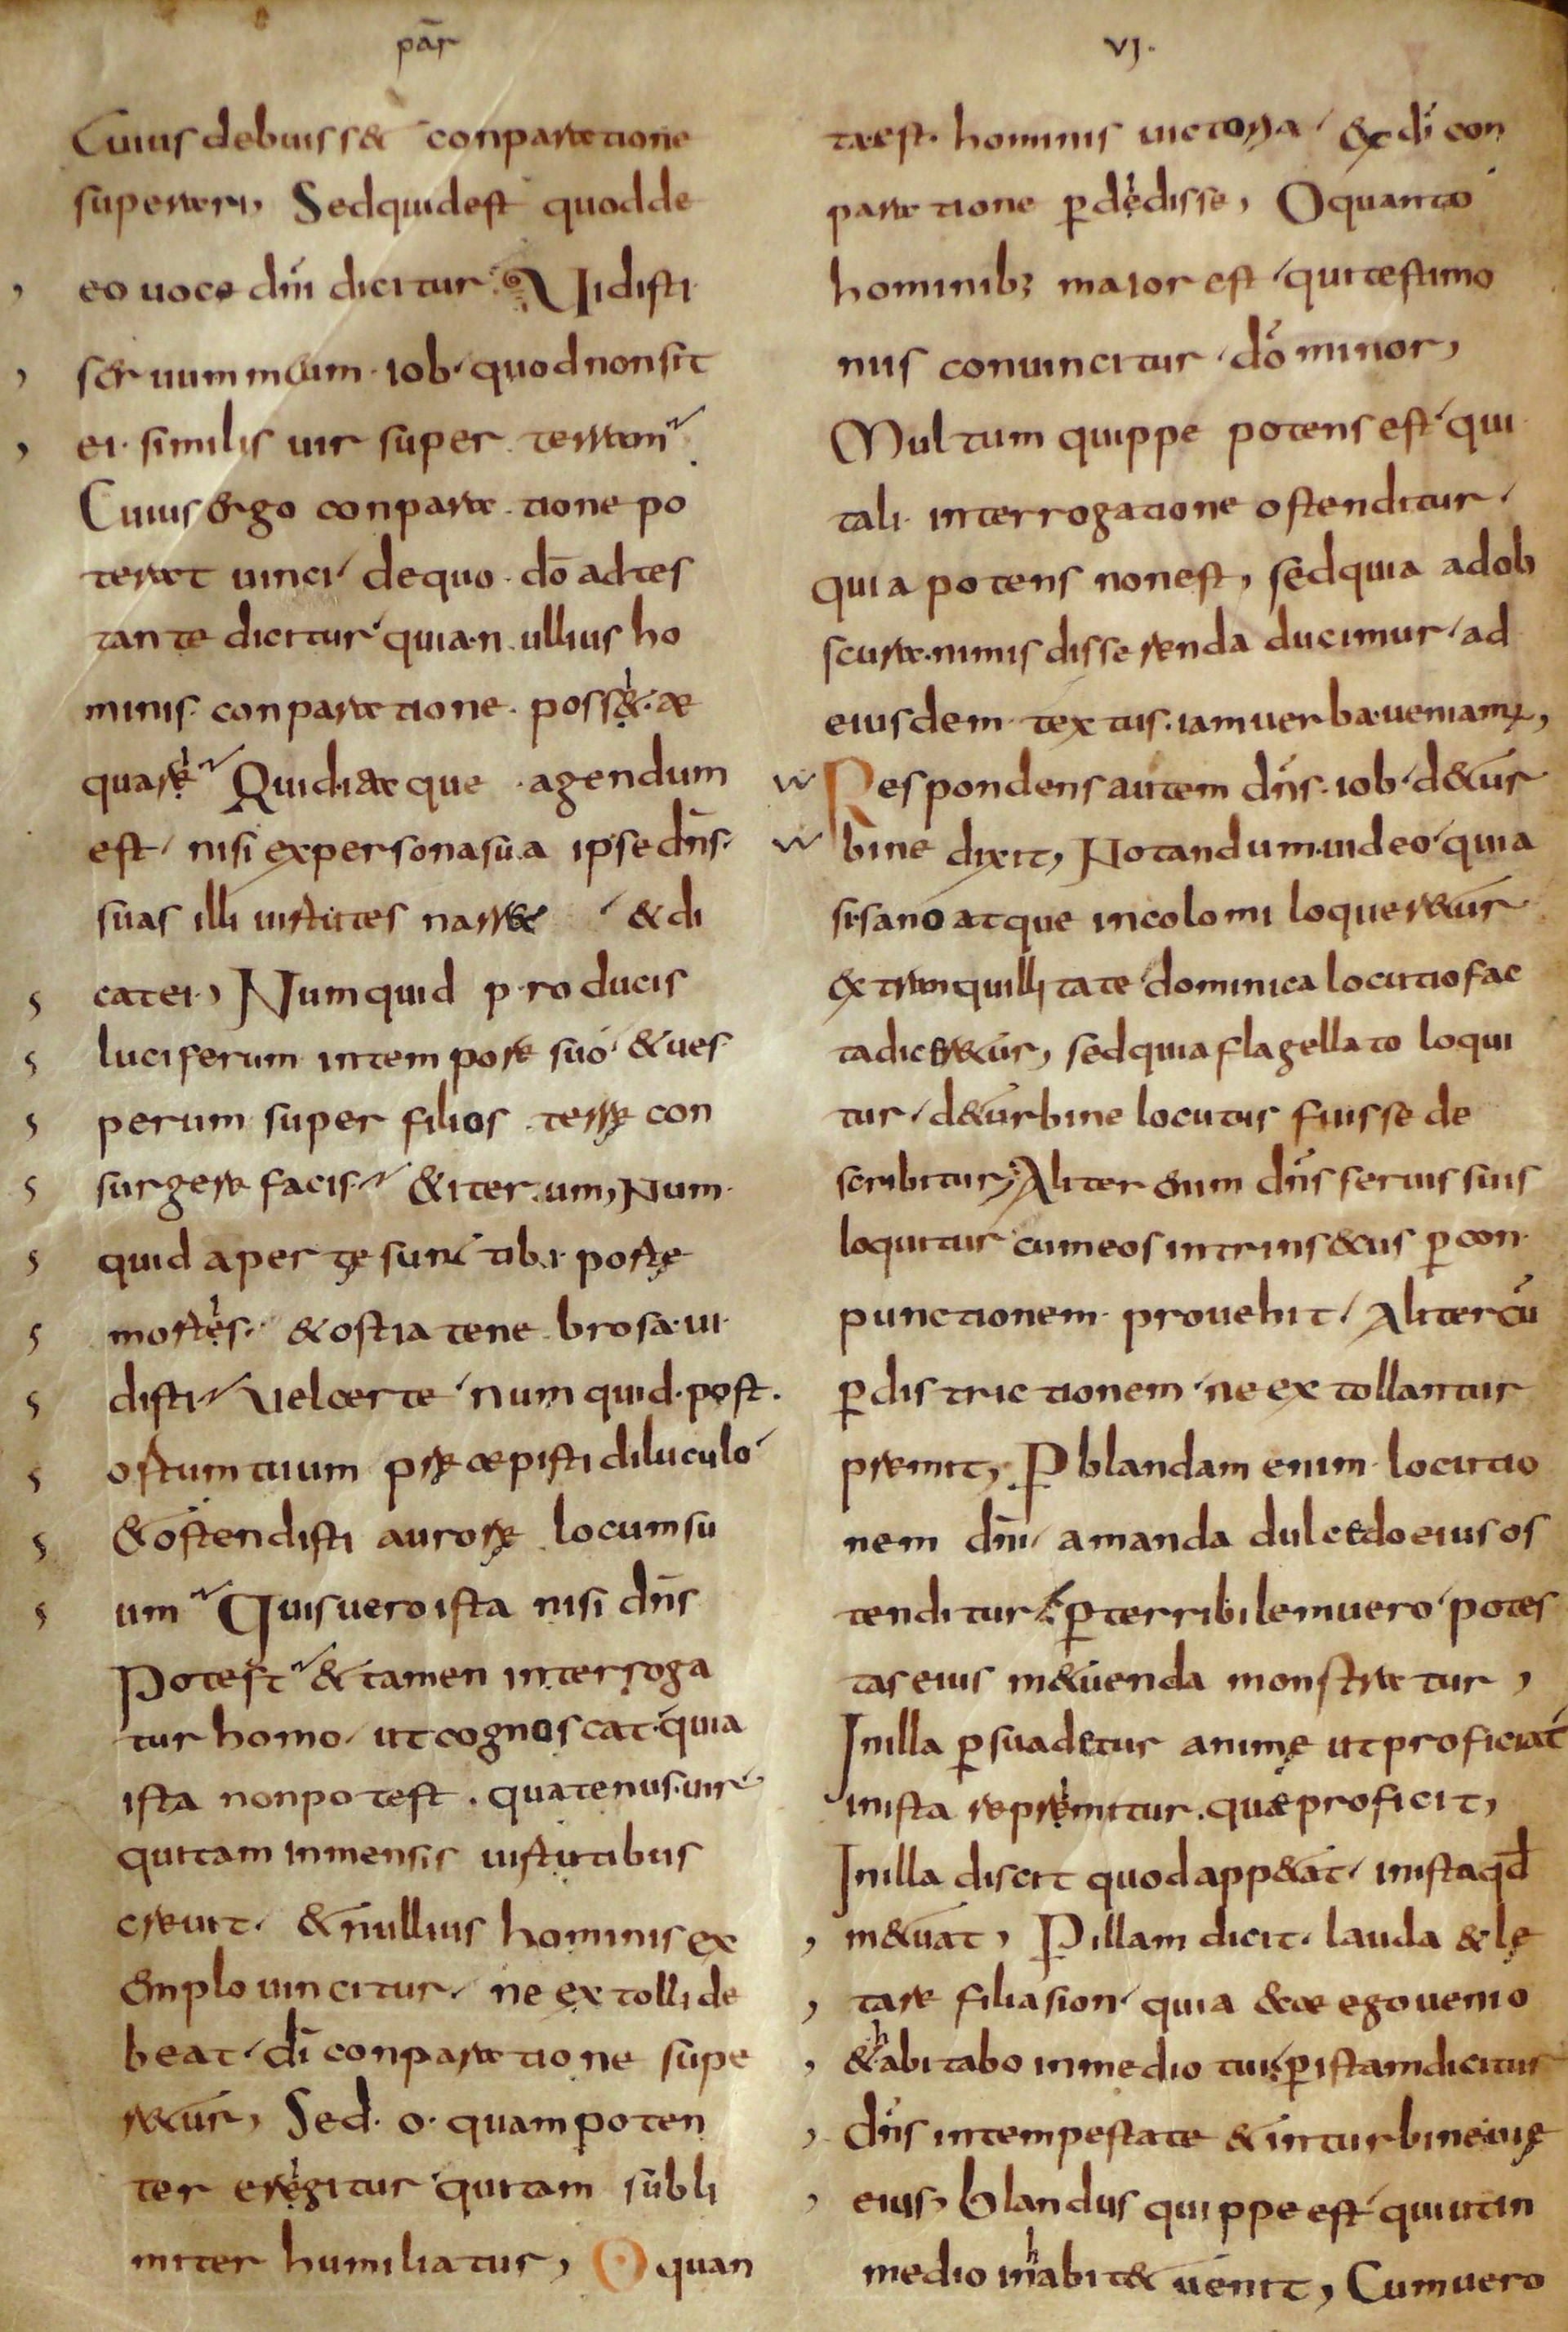 pār
Cuius debuiss& conparatione
superari, Sed quid est quod de
eo uoce dn̄i dicitur. Uidisti
seruum meum iob quod non sit
ei similis uir super terram
Cuius ergo conparatione po
terat uinci de quo dō adtes
tante dicitur quia n ullius ho
minis conparatione poss& ae
quari Quid itaque agendum
est nisi ex persona sua ipse dn̄s
suas illi uirtutes narr& & di
cat ei, Numquid producis
luciferum in tempore suo & ues
perum super filios terrę con
surgere facis & iterum, Num
quid apertę sunt tibi portę
mortis & ostia tenebrosa ui
disti Uel certe numquid post
ortum tuum pręcepisti diluculo
& ostendisti aurorę locum su
um Quis uero ista nisi dn̄s
Potest & tamen interroga
tur homo ut cognoscat quia
ista non potest quatenus uir
qui tam inmensis uirtutibus
creuit & nullius hominis ex
emplo uincitur ne extolli de
beat dī conparatione supe
r&ur, Sed o quam poten
ter erigitur qui tam subli
miter humiliatur, O quan
vj.
ta est hominis uictoria ex dī con
paratione p̱didisse, O quanto
hominib; maior est qui testimo
niis conuincitur dō minor,
Multum quippe potens est qui
tali interrogatione ostenditur
quia potens non est, sed quia ad ob
scura nimis disserenda ducimur ad
eiusdem textus iam uerba ueniamꝰ,
Respondens autem dn̄s iob d&ur
bine dixit, Notandum uideo quia
si sano atque incolomi loquer&ur
ex tranquillitate dominica locutio fac
ta dicer&ur, sed quia flagellato loqui
tur d&urbine locutus fuisse de
scribitur, Aliter enim dn̄s seruis suis
loquitur cum eos intrins&us ꝑ con
punctionem prouehit Aliter cū
ꝑ districtionem ne extollantur
premit, P blandam enim locutio
nem dn̄i amanda dulcedo eius os
tenditur ꝑ terribilem uero potes
tas eius m&uenda monstratur,
In illa ꝑsuadetur animę ut proficiat
in ista reprimitur quae proficit,
In illa discit quod app&at in ista qd̄
m&uat, P illam dicit lauda & lę
tare filia sion quia ecce ego uenio
& habitabo in medio tui ꝑ istam dicitur
dn̄s in tempestate & in turbine uię
eius, blandus quippe est qui ut in
medio inhabit& uenit, Cum uero